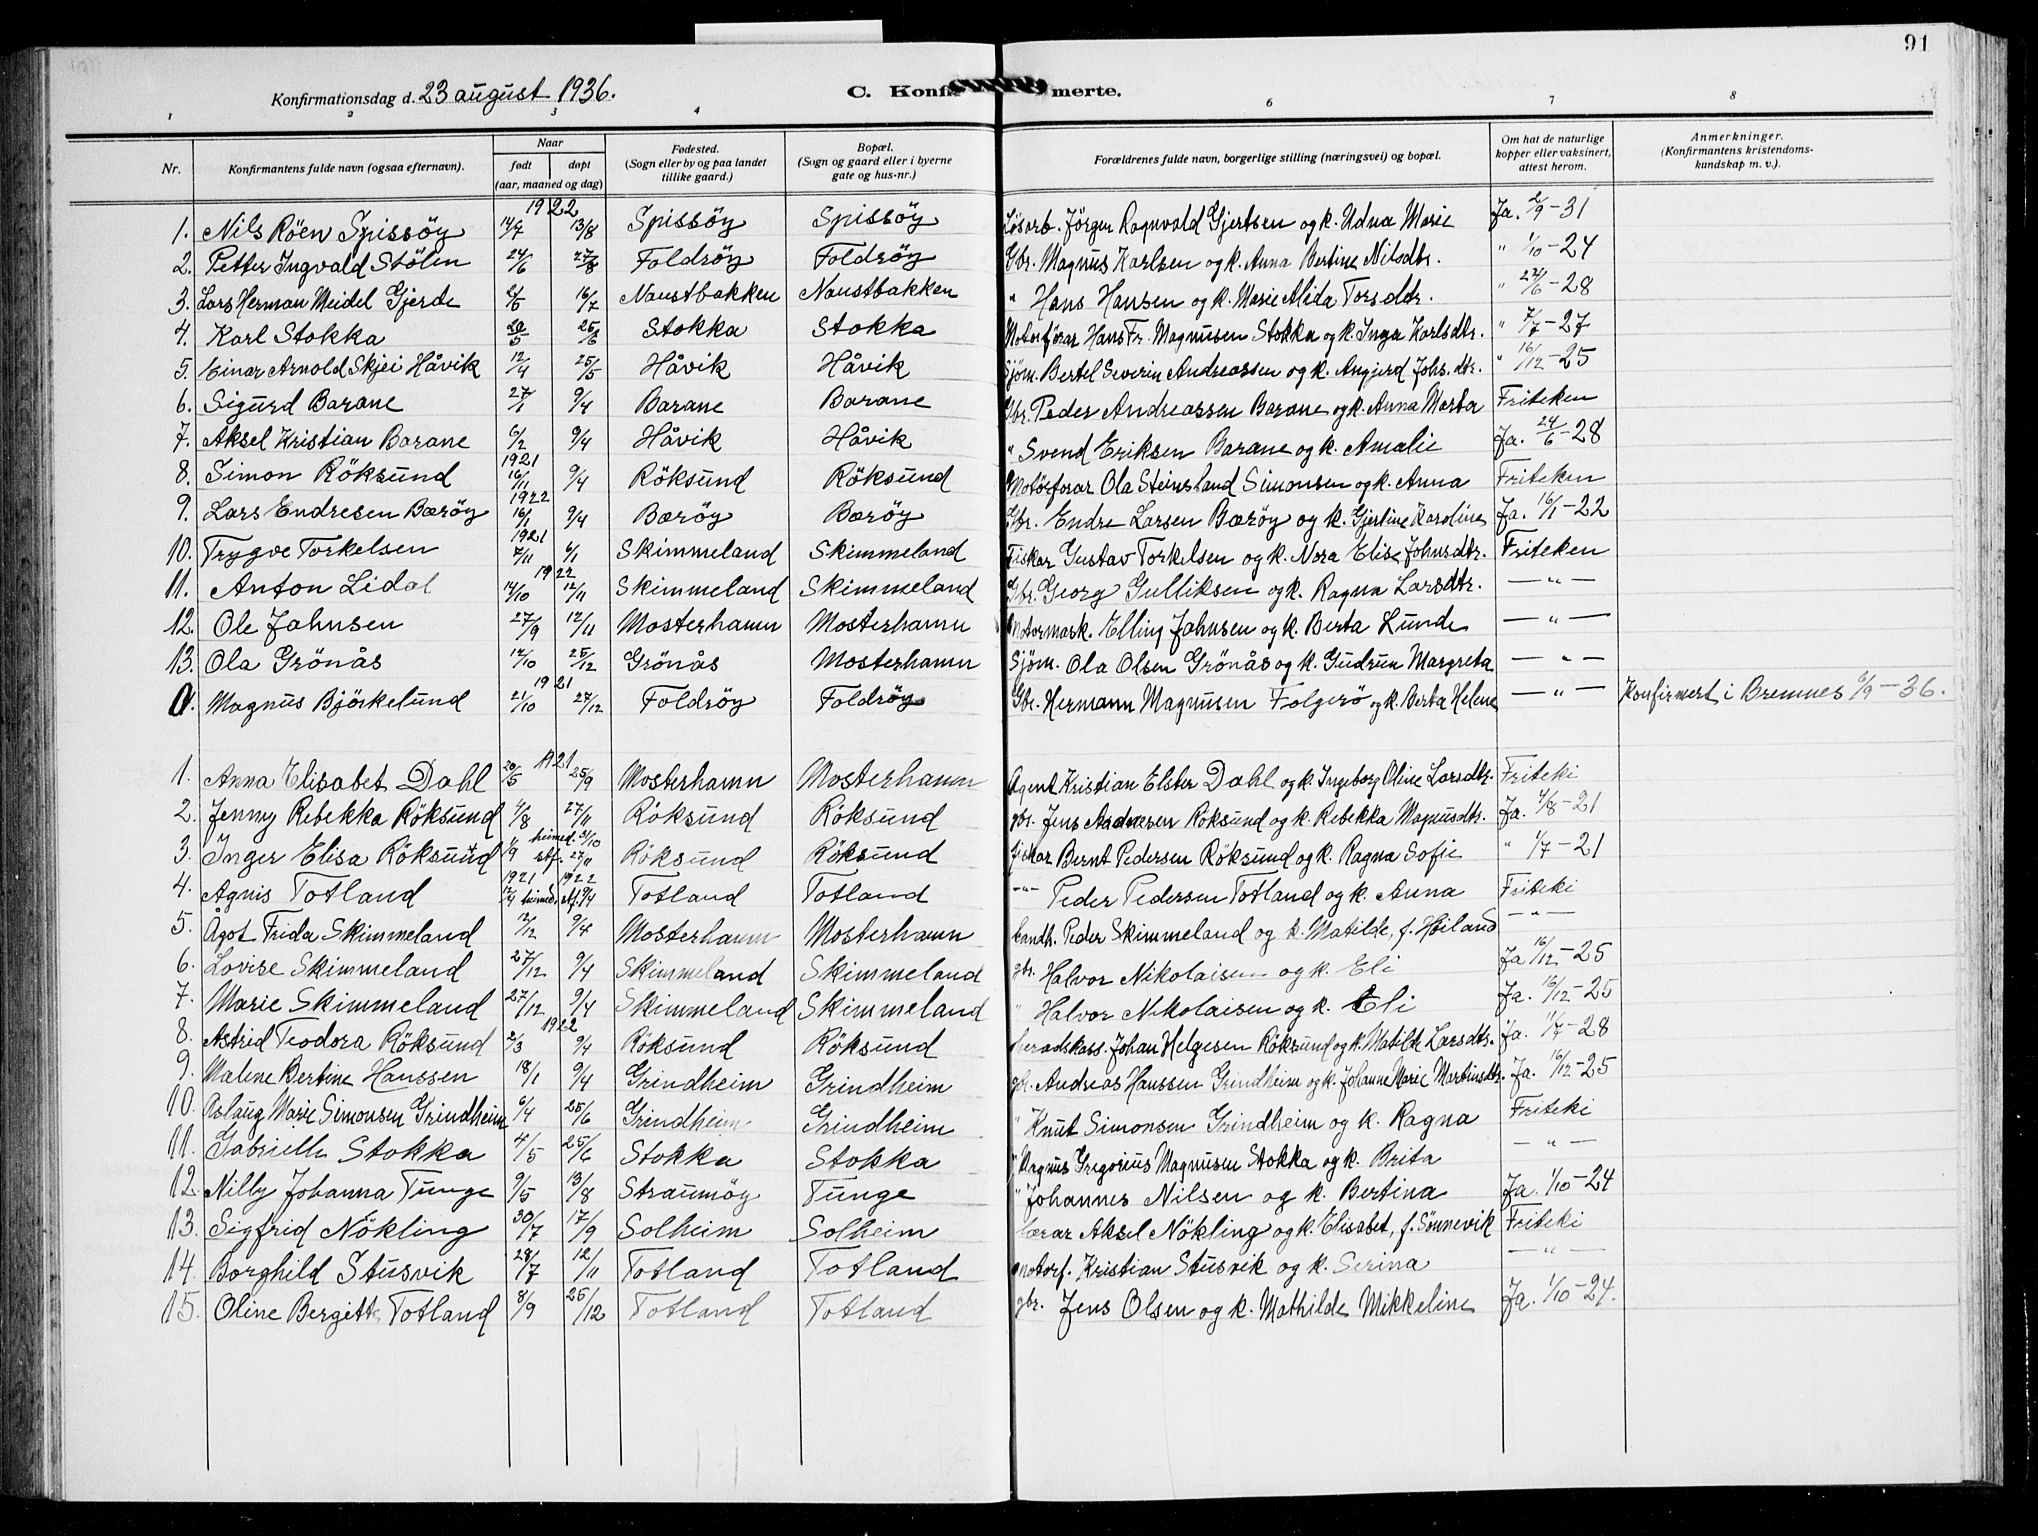 91
Konfirmationsdag d. 23 august 1936. C. Konfir merte.
1 2 3 4 6 7 8
Nr. Konfirmantens fulde navn (ogsaa efternavn). Naar født døpt (aar, maaned og dag) Fødested. (Sogn eller by og paa landet tillike gaard.) Bopæl. (Sogn og gaard eller i byerne gate og hus-nr.) Forældrenes fulde navn, borgerlige stilling (næringsvei) og bopæl. Om hat de naturlige kopper eller vaksinert, attest herom. Anmerkninger. (Konfirmantens kristendoms-kundskap m. v.).
1922
1. Nils Röen Spissöy 14/7 13/8 Spissöy Spissöy Lösarb. Jörgen Ragnvald Gjertsen og k. Udna Marie Ja. 2/9-31
2. Petter Ingvald Stölen 24/6 27/8 Foldröy Foldröy Gbr. Magnus Karlsen og k. Anna Bertine Nilsdtr. " 1/10-24
3. Lars Herman Meidel Gjerde 2/5 16/7 Naustbakken Naustbakken " Hans Hansen og k. Marie Alida Torsdtr. " 22/6-28
4. Karl Stokka 20/5 25/6 Stokka Stokka Motorförar Hans Fr. Magnusen Stokka og k. Inga Karlsdtr. " 7/7-27
5. Einar Arnold Skjei Håvik 12/4 25/5 Håvik Håvik Sjöm. Bertel Severin Andreassen og k. Angjerd Johs.dtr. " 16/12-25
6. Sigurd Barane 27/1 9/4 Barane Barane Gbr. Peder Andreassen Barane og k. Anna Marta Friteken
7. Aksel Kristian Barane 6/2 9/4 Håvik Håvik " Svend Eriksen Barane og k. Amalie Ja. 24/6-28
1921
8. Simon Röksund 16/11 9/4 Röksund Röksund Motorförar Ola Steinsland Simonsen og k. Anna Friteken
1922
9. Lars Endresen Bæröy 16/1 9/4 Bæröy Bæröy Gbr. Endre Larsen Bæröy og k. Gjertine Karoline Ja. 16/1-22
1921
10. Trygve Torkelsen 7/11 6/1 Skimmeland Skimmeland Fiskar Gustav Torkelsen og k. Nora Elise Johnsdtr. Friteken
1922
11. Anton Lidal 14/10 12/11 Skimmeland Skimmeland Gbr. Georg Gulliksen og k. Ragna Larsdtr. — " —
12. Ole Jahnsen 27/9 12/11 Mosterhamn Mosterhamn Motormask. Elling Jahnsen og k. Berta Lunde — " —
13. Ola Grönås 12/10 25/12 Grönås Mosterhamn Sjöm. Ola Olsen Grönås og k. Gudrun Margreta — " —
1921
0. Magnus Björkelund 21/10 27/12 Foldröy Foldröy Gbr. Hermann Magnusen Folgerö og k. Berta Helene — " — Konfirmert i Bremnes 6/9-36.
1921
1. Anna Elisabet Dahl 20/5 25/9 Mosterhamn Mosterhamn Agent Kristian Elster Dahl og k. Ingeborg Oline Larsdtr. Friteki
2. Jenny Rebekka Röksund 4/8 27/11 Röksund Röksund gbr. Jens Andersen Röksund og k. Rebekka Magnusdtr. Ja. 4/8-21
3. Inger Elisa Röksund 1/9 heimed. 31/10 stf. 27/11 Röksund Röksund fiskar Bernt Pedersen Röksund og k. Ragna Sofie " 1/7-21
1921 1922
4. Agnis Totland 12/4 heimed. stf. 9/4 Totland Totland —"— Peder Pedersen Totland og k. Anna Friteki
5. Ågot Frida Skimmeland 12/12 9/4 Mosterhamn Mosterhamn landh. Peder Skimmeland og k. Matilde, f. Höiland — " —
6. Lovise Skimmeland 27/12 9/4 Skimmeland Skimmeland gbr. Halvor Nikolaisen og k. Eli Ja 16/12-25
7. Marie Skimmeland 27/12 9/4 Skimmeland Skimmeland " Halvor Nikolaisen og k. Eli Ja. 16/12-25
1922
8. Astrid Teodora Röksund 2/3 9/4 Röksund Röksund heradskass. Johan Helgesen Röksund og k. Matilde Larsdtr. Ja. 11/7-28
9. Malene Bertine Hanssen 18/1 9/4 Grindheim Grindheim gbr. Andreas Hanssen Grindheim og k. Johanne Marie Martinsdtr. Ja. 16/12-25
10. Aslaug Marie Simonsen Grindheim 6/4 25/6 Grindheim Grindheim " Knut Simonsen Grindheim og k. Ragna Friteki
11. Gabrielle Stokka 4/5 25/6 Stokka Stokka " Magnus Gregorius Magnusen Stokka og k. Brita — " —
12. Nilly Johanna Tunge 9/5 13/8 Straumöy Tunge " Johannes Nilsen og k. Bertina Ja. 1/10-24
13. Sigfrid Nökling 30/7 17/9 Solheim Solheim lærar Aksel Nökling og k. Elisabet, f. Sönnevik Friteki
14. Borghild Stusvik 28/7 12/11 Totland Totland motorf. Kristian Stusvik og k. Serina — " —
15. Oline Bergitte Totland 8/9 25/12 Totland Totland gbr. Jens Olsen og k. Mathilde Mikkeline Ja. 1/10-24.